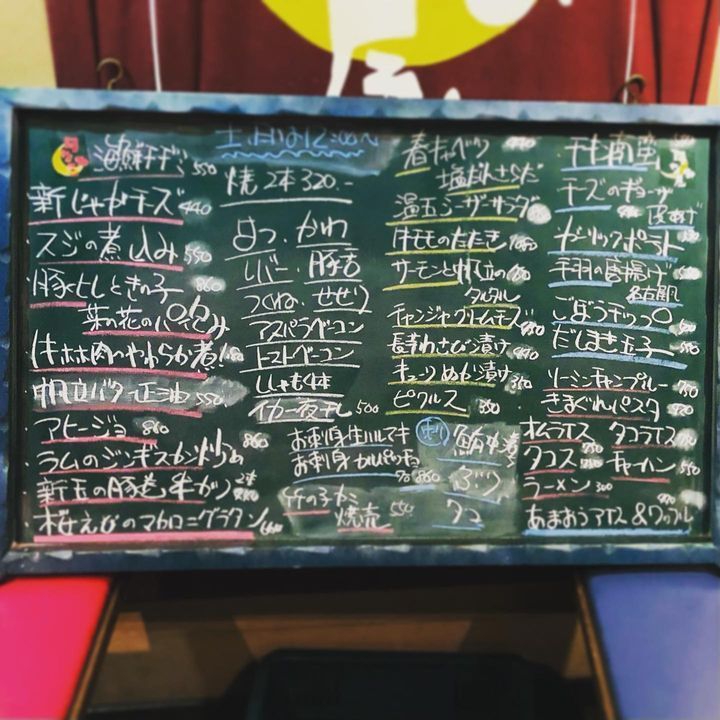 海鮮チヂミ 550
新じゃがチーズ 440
スジの煮込み 550
豚とし ときの子 860
菜の花の
牛ホホ肉のやわらか煮
帆立バター正油 550
アヒージョ 860
ラムのジンギスカン炒め 860
新玉の豚巻串かつ 2本
桜えびのマカロニグラタン
土、日は12:00〜
焼 2本320.-
かわ
レバー・豚
つくね・せせり
アスパラベーコン
トマトベーコン
ししゃも4本
イカ一夜干し 500
お刺身生ハルマキ
お刺身カルパッチョ
860
竹の子
焼売 550
春キャベツ
塩だれサラダ
温玉シーザーサラダ
牛モモのたたき
サーモンと帆立の
タルタル
チャンジャクリームチーズ
長芋わさび漬け
キューリぬか漬け
ピクルス 350
刺
ぶり
タコ
チキン南蛮
チーズのギョーザ
皮あげ
ガーリックポテト
手羽の唐揚げ
名古屋風
ごぼうチップ
だしまき玉子
ソーミンチャンプルー 750
きまぐれパスタ
オムライス タコライス
タコス 750 チャーハン 550
ラーメン 300
あまおうアイス&ワッフル